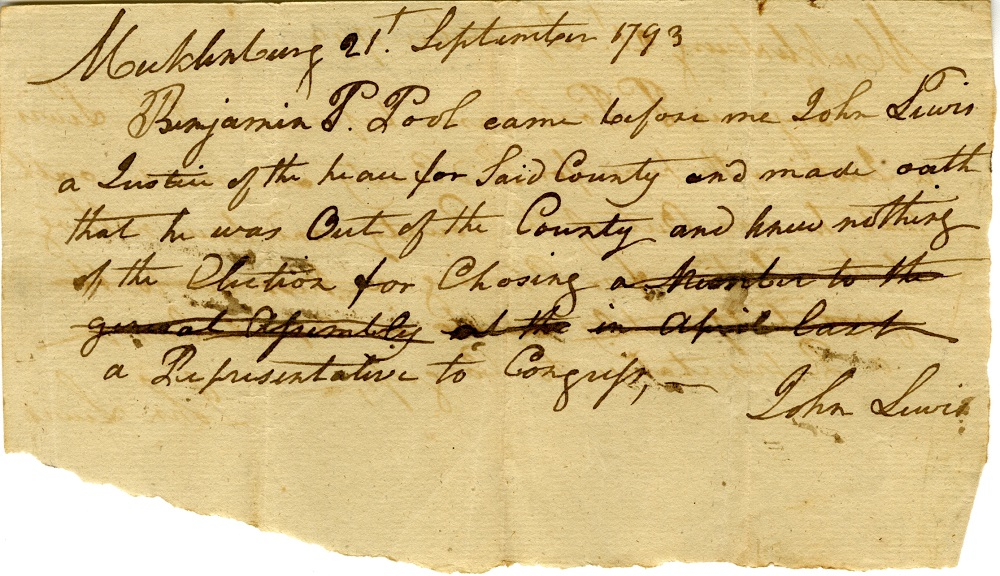 Mecklenburg 21t. September 1793
Benjamin P. Pool came before me John Lewis
a Justice of the peace for Said County and made oath
that he was Out of the County and knew nothing
of the Election for Chosing a Member to the
general Assembly at the in April last
a Representative to Congress,
John Lewis